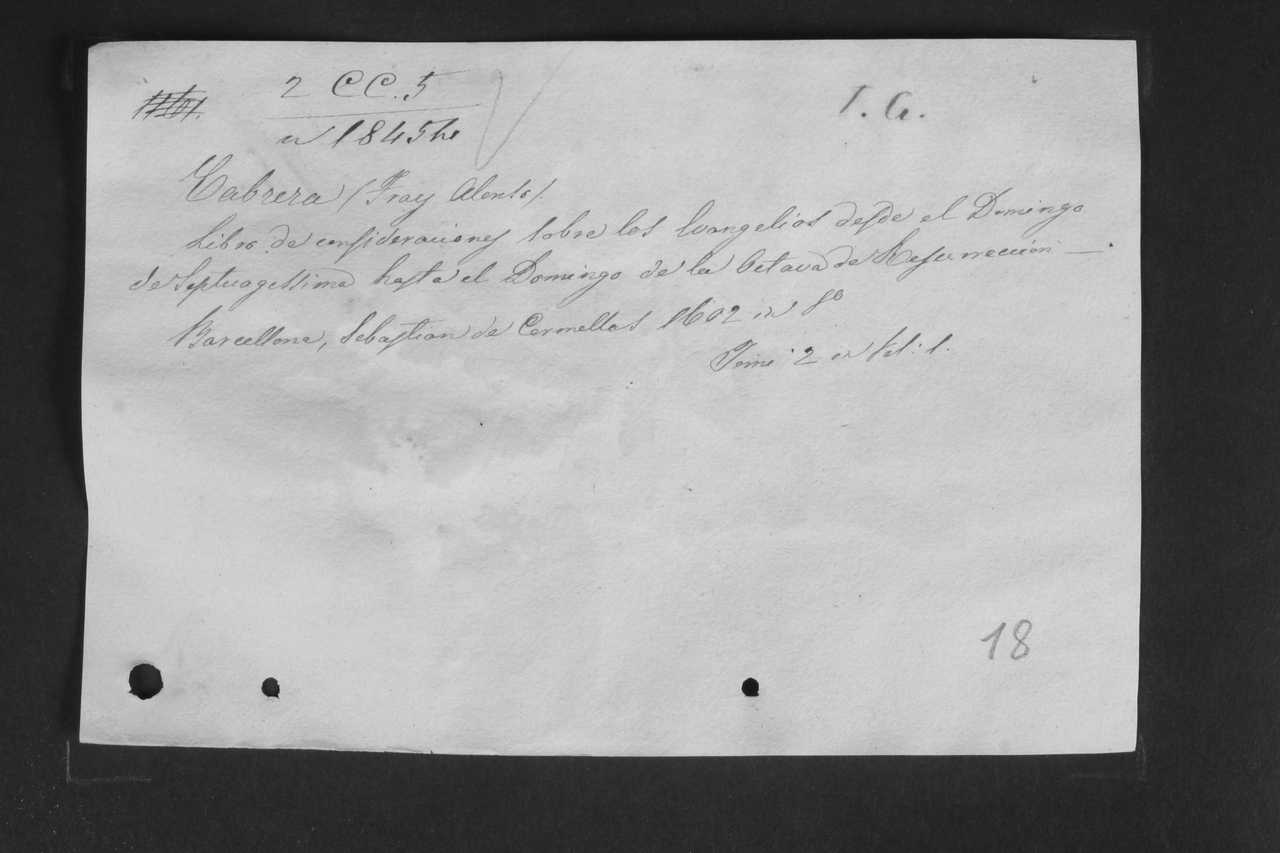 2 CC. 5
1845
T. G.
Cabrera (Fray Alonso).
Libro de consideraciones sobre los Evangelios desde el Domingo
de Septuagessima hasta el Domingo de la Octava de Resurreccion —.
Barcellona, Sebastian de Cormellas 1602 in 8º
Tomi 2 in Vol: 1.
18